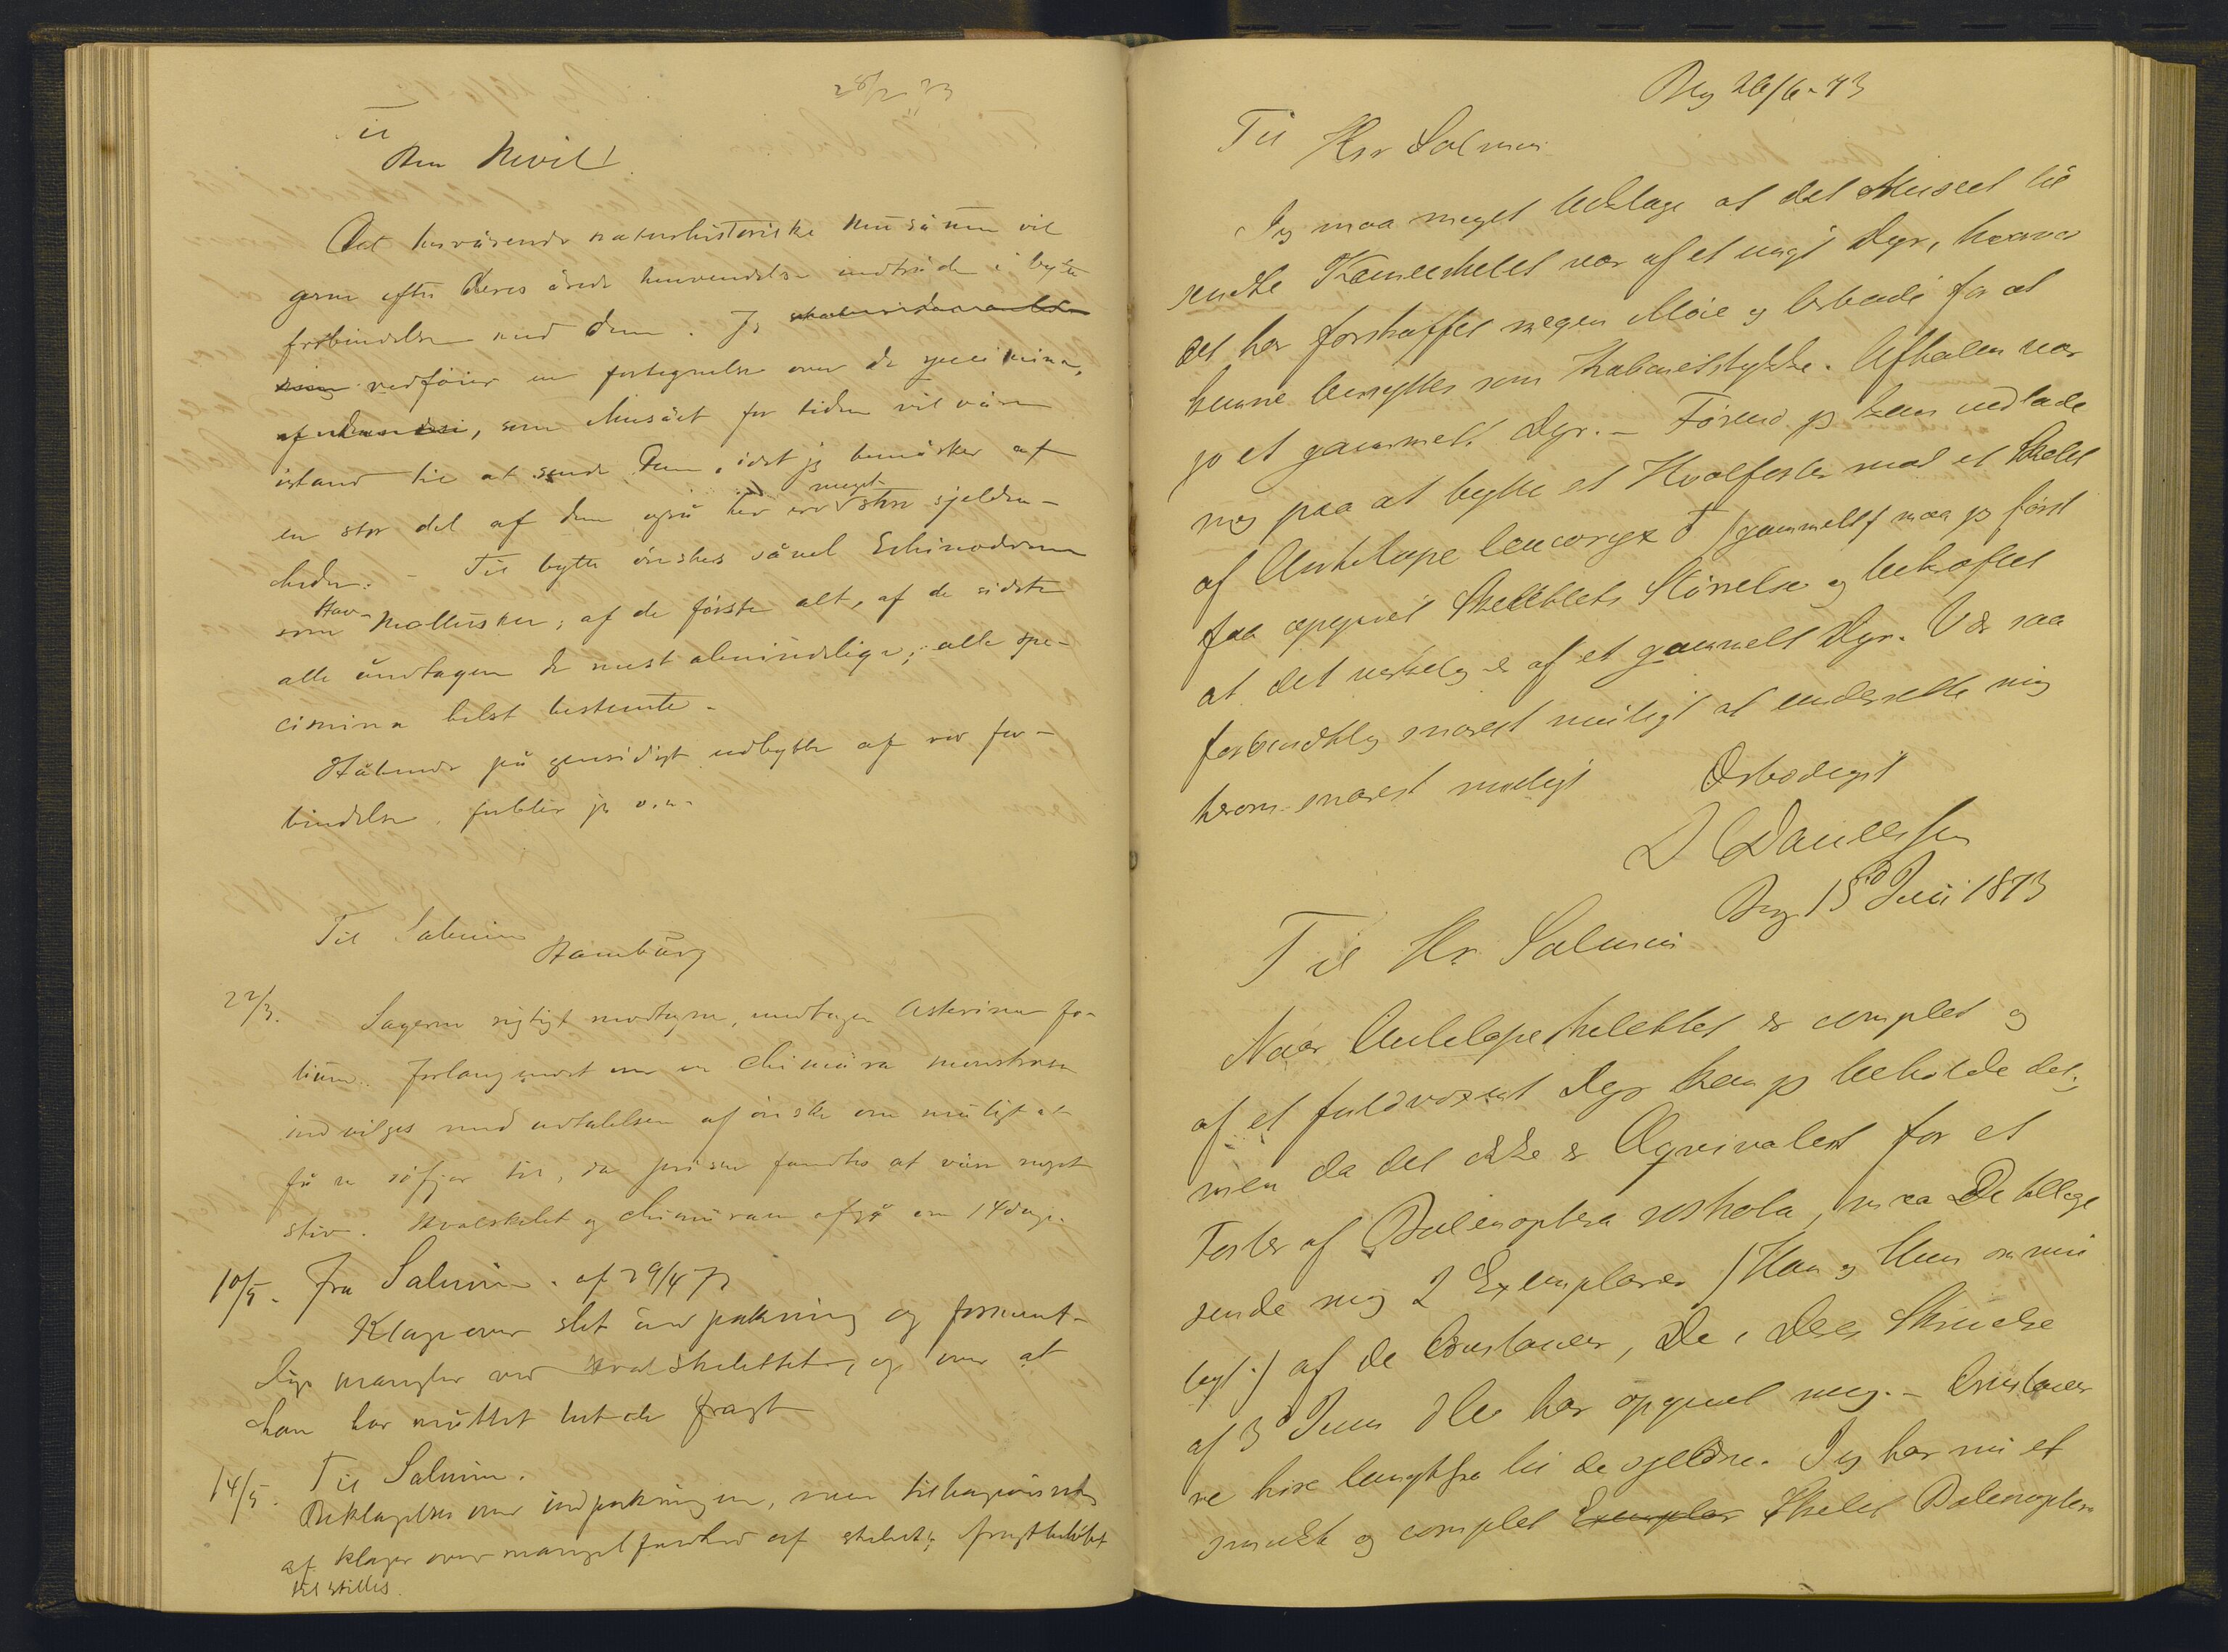 28/2 73
Til
Den Nevill
Det herværende naturhistoriske musæum vil
gerne efter Deres ærede henvendelse indtræde i bytte
forbindelse med dem. Jeg
vedføier en fortegnelse over de specimina,
, som Musæet for tiden vil være
istand til at sende Dem, idet jeg bemærker at
en stor del af dem også her ere meget store sjelden-
heder. – Til bytte ønskes såvel Echinodermer
som Hav-Mollusker; af de første alt, af de sidste
alle undtagen de mest almindelige; alle spe-
cimina helst bestemte.
Håbende på gensidigt udbytte af vor for-
bindelse, forbliver jeg o.s.v.
Til Salmin
Hamburg
22/3. Sagerne rigtigt modtagne, undtagen Asterina fo-
lium. Forlangendet om en chimæra monstrosa
indvilges med udtalelsen af ønske om muligt at
få en til, da prisen fandtes at være noget
stiv. Hvalskelet og chimæraen afgå om 14 dage.
10/5. Fra Salmin af 29/4 73
Klage over slet indpakning og forment-
lige mangler ved hvalskelettet, og over at
han har måttet betale fragt
14/5. Til Salmin.
Beklagelse over indpakningen, men tilbagevises
af klager over mangelfuldhed af skelet; fragtbeløbet
tilstilles.
Brg 26/6-73
Til Hrr Salmin
Jeg maa meget beklage at det Museet til
sendte Kameelskelet var af et ungt Dyr, hvorved
det har forskaffet megen Møie og Arbeide for at
kunne benyttes som Kabinetstykke. Aftalen var
jo et gammelt Dyr. – Førend jeg kan indlade
mig paa at bytte et Hvalfoster mod et Skelet
af Antelope leucoryx ♂ (gammelt) maa jeg først
faa opgivet Skelettets Størrelse og bekræftet
at det virkelig er af et gammelt Dyr. Vær saa
forbindtlig snarest muligt at underrette mig
herom snarest muligt
Ærbødigst
D C Danielssen
Brg 15d Juli 1873
Til Hr. Salmin
Naar Antelopeskelettet er complet og
af et fuldvoxent Dyr kan jeg beholde det;
men da det ikke er Æqvivalent for et
Foster af Balenoptera rostrata, maa De tillige
sende mig 2 Exemplarer (Han og Hun om mu
ligt.) af de Crustaceer, De i Deres Skrivelse
af 3d Juni har opgivet mig. – Crustaceer
ne høre langtfra til de sjeldne. Jeg har nu et
smukt og complet Exemplar Skelet Balenoptera